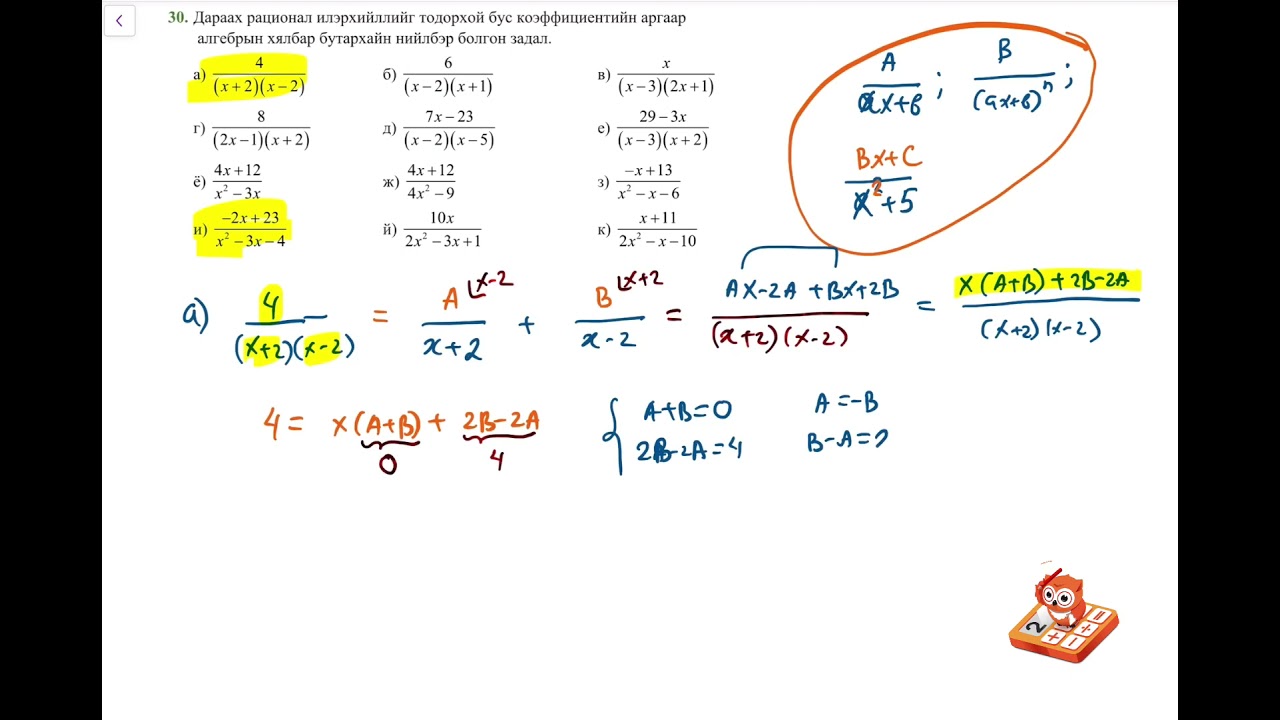 30. Дараах рационал илэрхийллийг тодорхой бус коэффициентийн аргаар
алгебрын хялбар бутархайн нийлбэр болгон задал.
а) 4/((x+2)(x−2)) б) 6/((x−2)(x+1)) в) x/((x−3)(2x+1))
г) 8/((2x−1)(x+2)) д) (7x−23)/((x−2)(x−5)) е) (29−3x)/((x−3)(x+2))
ё) (4x+12)/(x²−3x) ж) (4x+12)/(4x²−9) з) (−x+13)/(x²−x−6)
и) (−2x+23)/(x²−3x−4) й) 10x/(2x²−3x+1) к) (x+11)/(2x²−x−10)
A/(ax+b) ; B/(ax+b)ⁿ ;
(Bx+C)/(x²+5)
а) 4/((x+2)(x-2)) = A/(x+2) ⌊x-2 + B/(x-2) ⌊x+2 = (Ax-2A+Bx+2B)/((x+2)(x-2)) = (x(A+B)+2B-2A)/((x+2)(x-2))
4 = x(A+B) + 2B-2A
0 4
{ A+B=0 A=-B
2B-2A=4 B-A=2
2 + ÷ − =